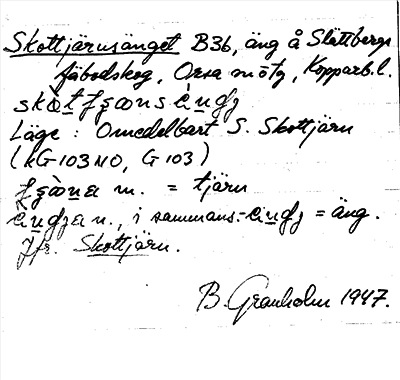 Skottjärnsänget B3b, äng å Slättbergs
fäbodskog, Orsa sn o tg, Kopparb. l.
Läge: Omedelbart S. Skottjärn
(kG103NO, G103)
m. = tjärn
n., i sammans.- = äng.
Jfr. Skottjärn.
B. Granholm 1947.